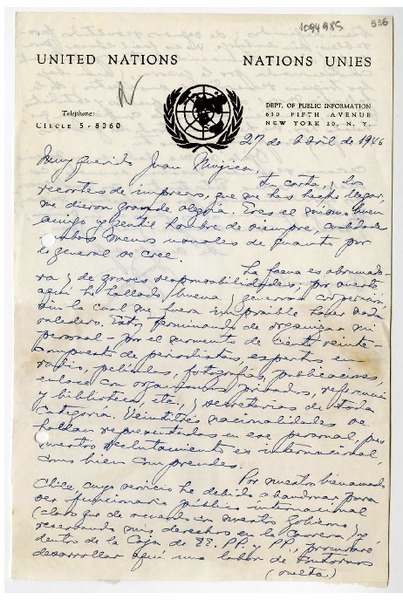 1094985
536
UNITED NATIONS NATIONS UNIES
N
Telephone:
CIRCLE 5-8060
DEPT. OF PUBLIC INFORMATION
610 FIFTH AVENUE
NEW YORK 20, N. Y.
27 de abril de 1946
Muy querido Juan Mujica:
Tu carta, y los
recortes de impresos, que me has hecho llegar,
me dieron grande alegría. Eres el mismo buen
amigo y gentil hombre de siempre, cualidades
ambas menos usuales de cuanto por
lo general se cree.
La faena es abrumado-
ra y de graves responsabilidades, por cuanto
aquí he hallado buena y generosa cooperación
sin la cual me sería imposible hacer nada
valedero. Estoy terminando de organizar mi
personal - por el momento de ciento veinte -
compuesto de periodistas, expertos en
radio, películas, fotografías, publicaciones,
enlace con organizaciones privadas, referencia
y biblioteca, etc., y secretarias de toda
categoría. Veintitrés nacionalidades se
hallan representadas en ese personal, pues
nuestro reclutamiento es internacional,
como bien comprendes.
Por nuestro bienamado
Chile cuyo servicio he debido abandonar para
ser funcionario público internacional
(claro que de acuerdo con nuestro Gobierno y
reservando mis derechos en la Carrera y
dentro de la Caja de EE. PP. y PP.), procuraré
desarrollar aquí una labor de
(vuelta)